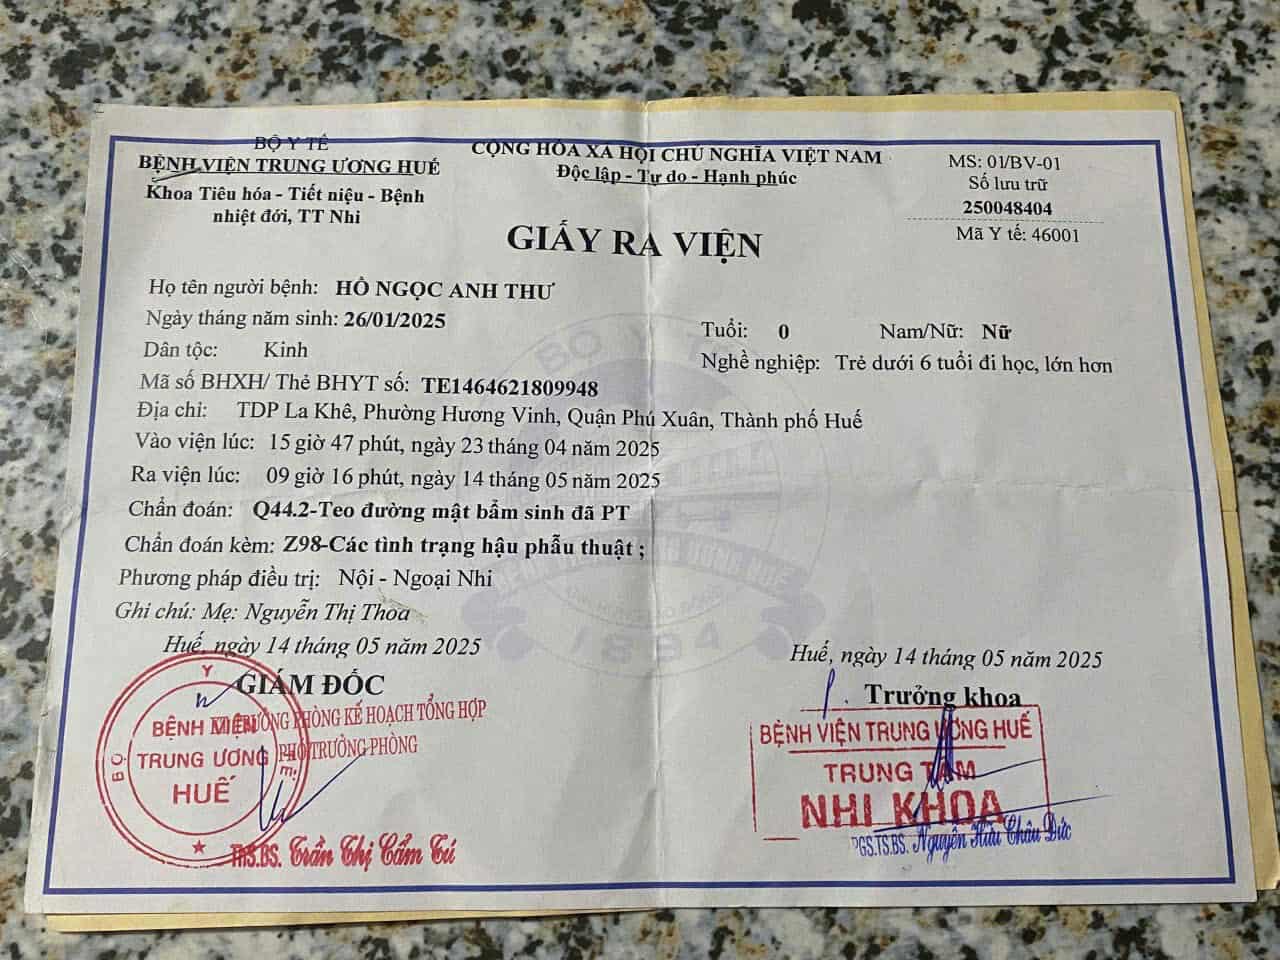 BỘ Y TẾ
BỆNH VIỆN TRUNG ƯƠNG HUẾ
Khoa Tiêu hóa - Tiết niệu - Bệnh
nhiệt đới, TT Nhi
CỘNG HÒA XÃ HỘI CHỦ NGHĨA VIỆT NAM
Độc lập - Tự do - Hạnh phúc
MS: 01/BV-01
Số lưu trữ
250048404
Mã Y tế: 46001
GIẤY RA VIỆN
Họ tên người bệnh: HỒ NGỌC ANH THƯ
Ngày tháng năm sinh: 26/01/2025
Tuổi: 0 Nam/Nữ: Nữ
Dân tộc: Kinh
Nghề nghiệp: Trẻ dưới 6 tuổi đi học, lớn hơn
Mã số BHXH/ Thẻ BHYT số: TE1464621809948
Địa chỉ: TDP La Khê, Phường Hương Vinh, Quận Phú Xuân, Thành phố Huế
Vào viện lúc: 15 giờ 47 phút, ngày 23 tháng 04 năm 2025
Ra viện lúc: 09 giờ 16 phút, ngày 14 tháng 05 năm 2025
Chẩn đoán: Q44.2-Teo đường mật bẩm sinh đã PT
Chẩn đoán kèm: Z98-Các tình trạng hậu phẫu thuật ;
Phương pháp điều trị: Nội - Ngoại Nhi
Ghi chú: Mẹ: Nguyễn Thị Thoa
Huế, ngày 14 tháng 05 năm 2025
GIÁM ĐỐC
TRƯỞNG PHÒNG KẾ HOẠCH TỔNG HỢP
PHÓ TRƯỞNG PHÒNG
BỘ Y TẾ
BỆNH VIỆN
TRUNG ƯƠNG
HUẾ
ThS.BS. Trần Thị Cẩm Tú
Huế, ngày 14 tháng 05 năm 2025
P. Trưởng khoa
BỆNH VIỆN TRUNG ƯƠNG HUẾ
TRUNG TÂM
NHI KHOA
PGS.TS.BS. Nguyễn Hữu Châu Đức
BỘ Y TẾ
1894